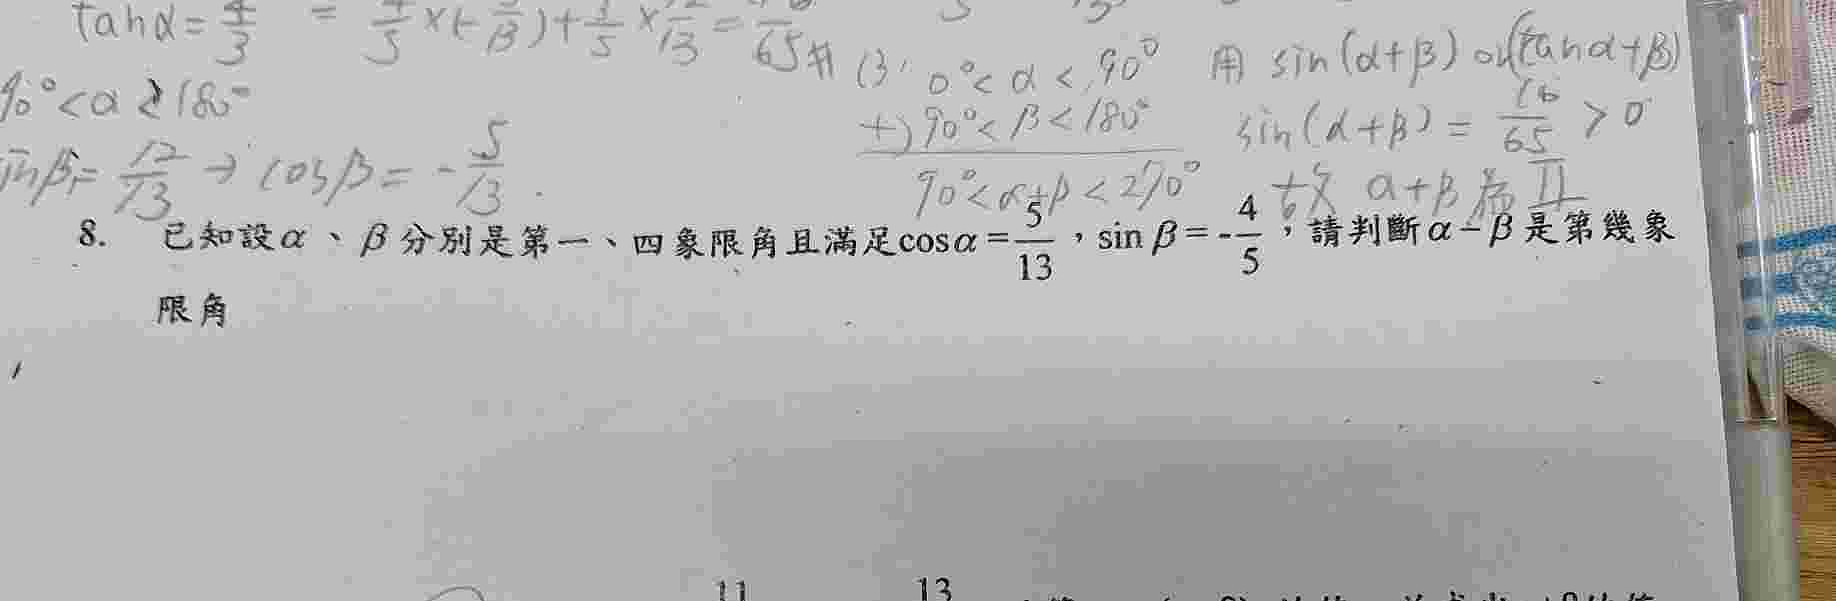 tanα = 4/3 = 4/5 × (- 5/13) + 3/5 × 12/13 = 16/65 #
(3) 0° < α < 90° 用 sin(α+β) or (tanα+β)
90° < α < 180°
+) 90° < β < 180° sin(α+β) = 16/65 > 0
sinβ = 12/13 → cosβ = - 5/13 .
90° < α+β < 270° 故 α+β 為 II
8. 已知設α、β分別是第一、四象限角且滿足cosα = 5/13，sin β = - 4/5，請判斷α − β是第幾象
限角
11 13